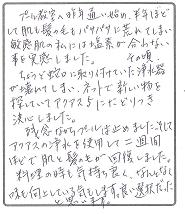 プール教室へ昨年通い始め、半年ほど
して肌も髪の毛もパサパサに荒れてしまい
敏感肌の私には塩素が合わない
事を実感しました。その頃、
ちょうど蛇口に取り付けていた浄水器
が壊れてしまい、ネットで新しい物を
探していてアクアス5にたどりつき
決心しました。
残念ながらプールは止めました。そして
アクアスの浄水を使用して二週間
ほどで肌も髪の毛が回復しました。
料理の時も気持ち良く、なんとなく
味も何という気もします。良い選択だった
と思います。